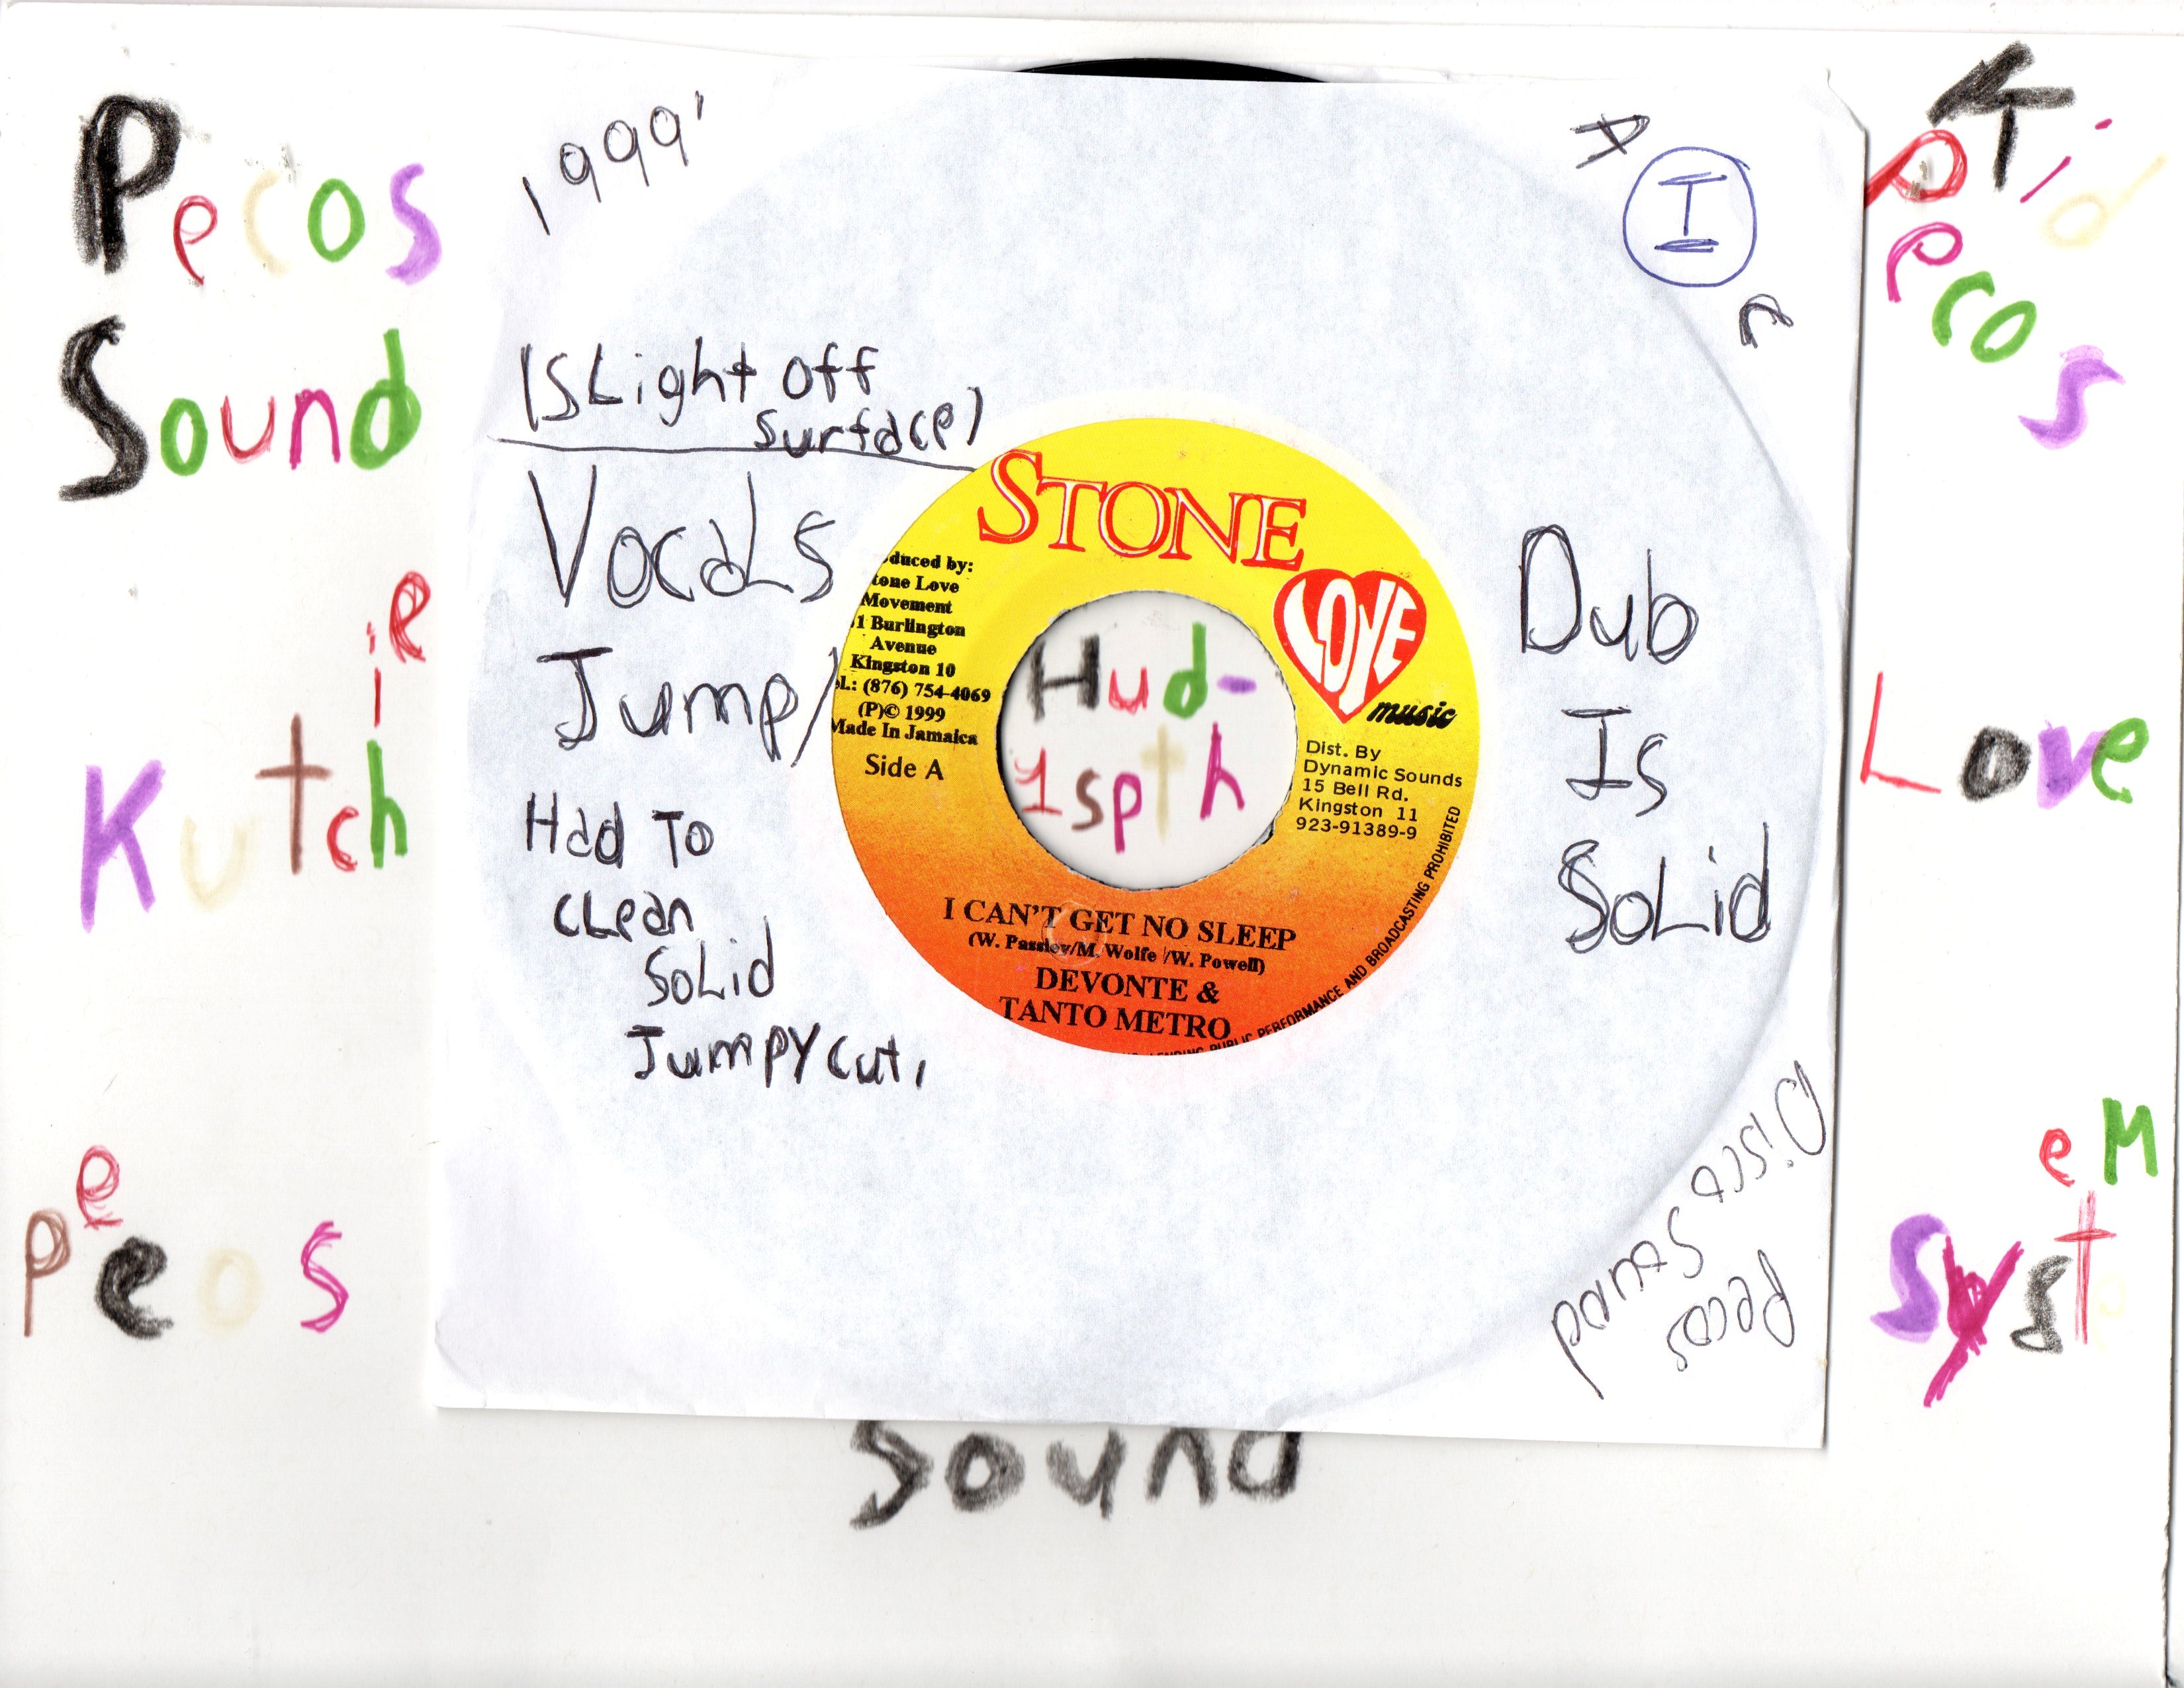 Pecos
Sound
Kutchie
Peeos
1999'
(SLight off
surface)
VocaLs
Jump/
Had To
cLean
SoLid
Jumpy cut,
STONE
LOVE
music
duced by:
tone Love
Movement
1 Burlington
Avenue
Kingston 10
el.: (876) 754-4069
(P)© 1999
Made In Jamaica
Side A
Hud-
1spth
Dist. By
Dynamic Sounds
15 Bell Rd.
Kingston 11
923-91389-9
I CAN'T GET NO SLEEP
(W. Passley/M. Wolfe /W. Powell)
DEVONTE &
TANTO METRO
LENDING PUBLIC PERFORMANCE AND BROADCASTING PROHIBITED
A
I
Dub
Is
SoLid
Pecos
Disco Sound
Kid
Pecos
Love
SysteM
Sound